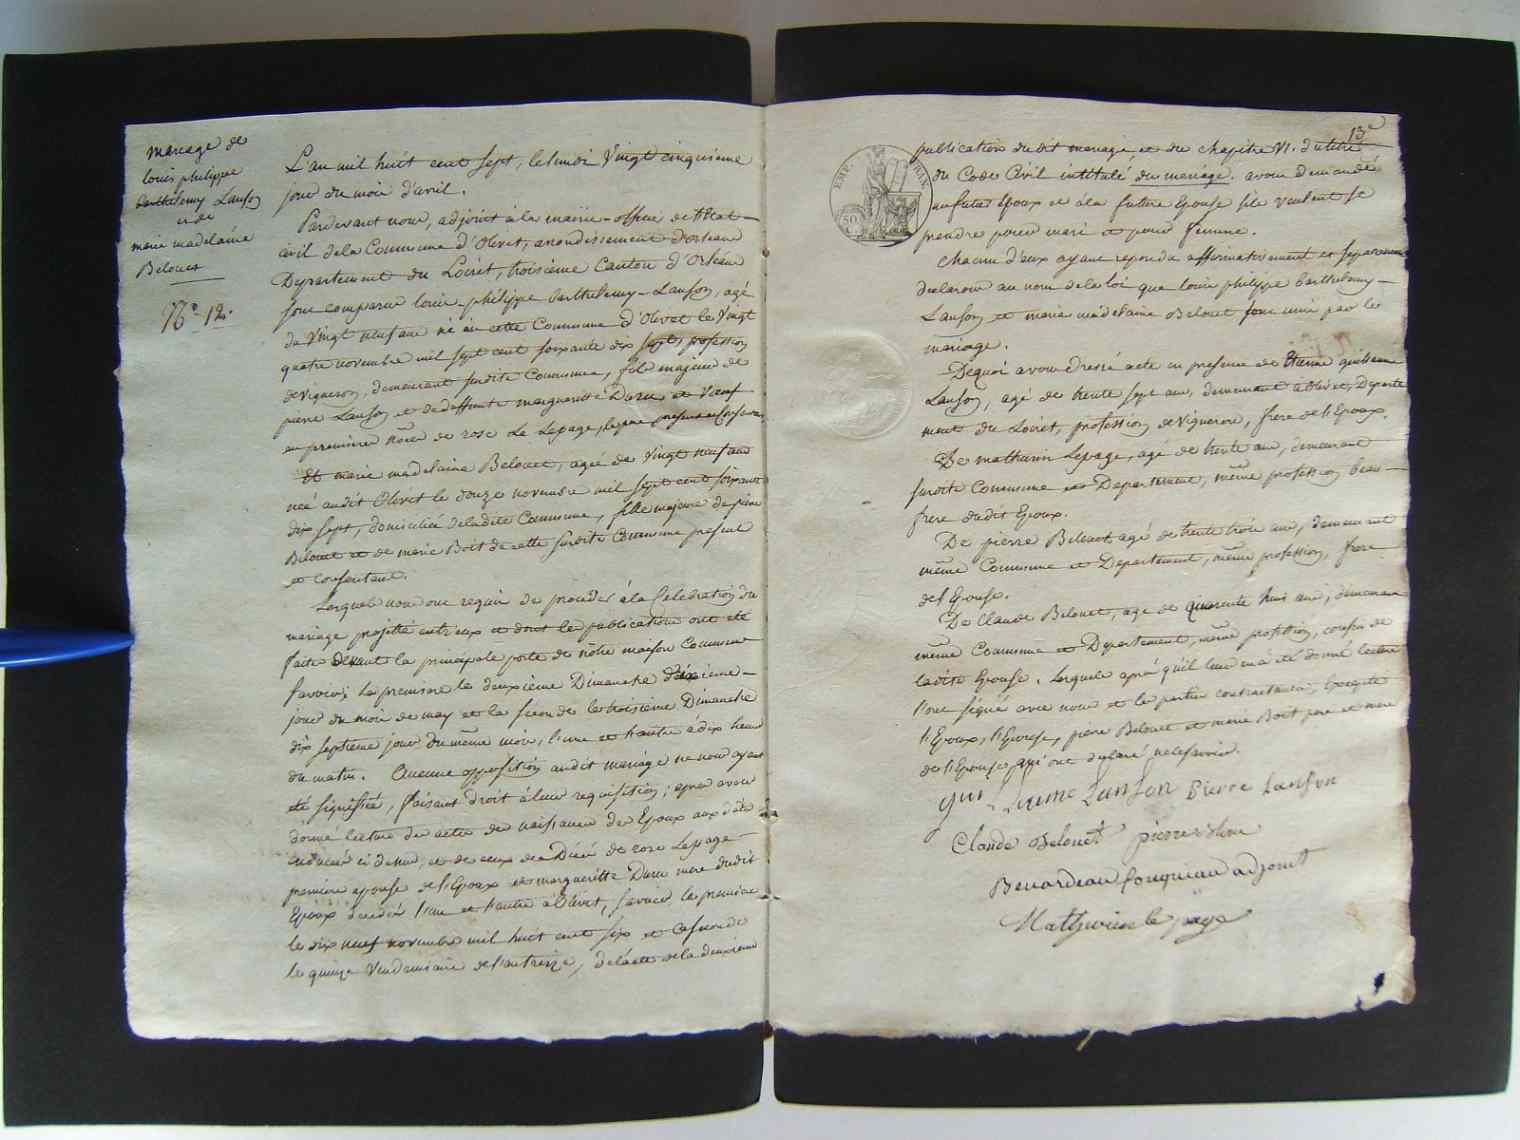 mariage de
louis philippe
barthelemy Lanson
et de
marie madelaine
Belouet
N.° 12.
L'an mil huit cent sept, le lundi Vingt cinquieme
jour du mois d'avril.
Pardevant nous, adjoint à la mairie - officier de l'Etat -
civil de la Commune d'Olivet, arrondissement d'orleans
Departement du Loiret, troisième Canton d'Orleans
sont comparus louis - philippe barthelemy - Lanson, agé
de Vingt neuf ans né en cette Commune d'Olivet le Vingt
quatre novembre mil sept cent soixante dix sept, profession
de Vigneron, demeurant susdite Commune, fils majeur de
pierre Lanson et de deffunte marguerite Daru et Veuf
en premieres nôces de rose Le Lepage, le pere present et Consentant
Et marie madelaine Belouet, agée de Vingt neuf ans
née audit Olivet le douze novembre mil sept cent soixante
dix sept, domiciliée de ladite Commune, fille majeure de pierre
Belouet et de marie Boit de cette susdite Commune present
et consentant.
Lesquels nous ont requis de proceder à la Celebration du
mariage projetté entr'eux et dont les publications ont été
faites devant la principale porte de nôtre maison Commune
savoir; la premiere le deuxième Dimanche dixième -
jour du mois de may et la seconde le troisieme Dimanche
dix septieme jour du même mois, l'une et l'autre à dix heures
du matin. Aucune opposition audit mariage ne nous ayant
été signifiée, faisant droit à leur requisition; après avoir
donné lecture des actes de naissance des Epoux aux dates
énoncées ci dessus, et de ceux des Décés de rose Lepage -
premiere epouse de l'Epoux et margueritte Daru mere dudit
Epoux decedés l'une et l'autre à Olivet, savoir la premiere
le dix neuf novembre mil huit cent six et la seconde
le quinze Vendemiaire de l'an treize, de l'acte de la deuxieme
13e
EMP. FRAN.
50
publication dudit mariage et du chapitre VI. du titre
du Code Civil intitulé du mariage. avons demandé
au futur Epoux et à la future Epouse s'ils veulent se
prendre pour mari et pour femme.
chacun d'eux ayant repondu affirmativement et separement
declarons au nom de la loi que louis philippe barthelemy -
Lanson et marie madelaine Belouet sont unis par le
mariage.
De quoi avons dressé acte en presence de Etienne guillaume
Lanson, agé de trente sept ans, demeurant à Olivet, Departe
ment du Loiret, profession de Vigneron, frere de l'Epoux.
De mathurin Lepage, agé de trente ans, demeurant
susdite Commune et Departement, même profession, beau -
frere dudit Epoux.
De pierre Belouet agé de trente trois ans, demeurant
même Commune et Departement, même profession, frere
de l'Epouse.
De Claude Belouet, agé de quarente huit ans, demeurant
même Commune et Departement, même profession, cousin de
ladite Epouse. Lesquels après qu'il leur en a été donné lecture
l'ont signé avec nous et les parties contractantes, Excepté
l'Epoux, l'Epouse, pierre Belouet et marie Boit pere et mere
de l'Epouse qui ont declaré ne le savoir.
gui Laume Lanson Pierre Lanson
Claude Belouet pierre
adjoint
Mathurin le page